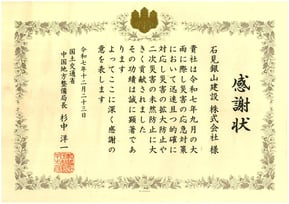 感謝状
石見銀山建設 株式会社 様
貴社は令和七年九月の大
雨に際し災害の応急対策
において迅速且つ的確に
対応し災害の拡大防止や
二次災害の未然防止に大
きく貢献されました
その功績は誠に顕著であ
ります
よってここに深く感謝の
意を表します
令和七年十二月二十三日
国土交通省
中国地方整備局長 杉中 洋一